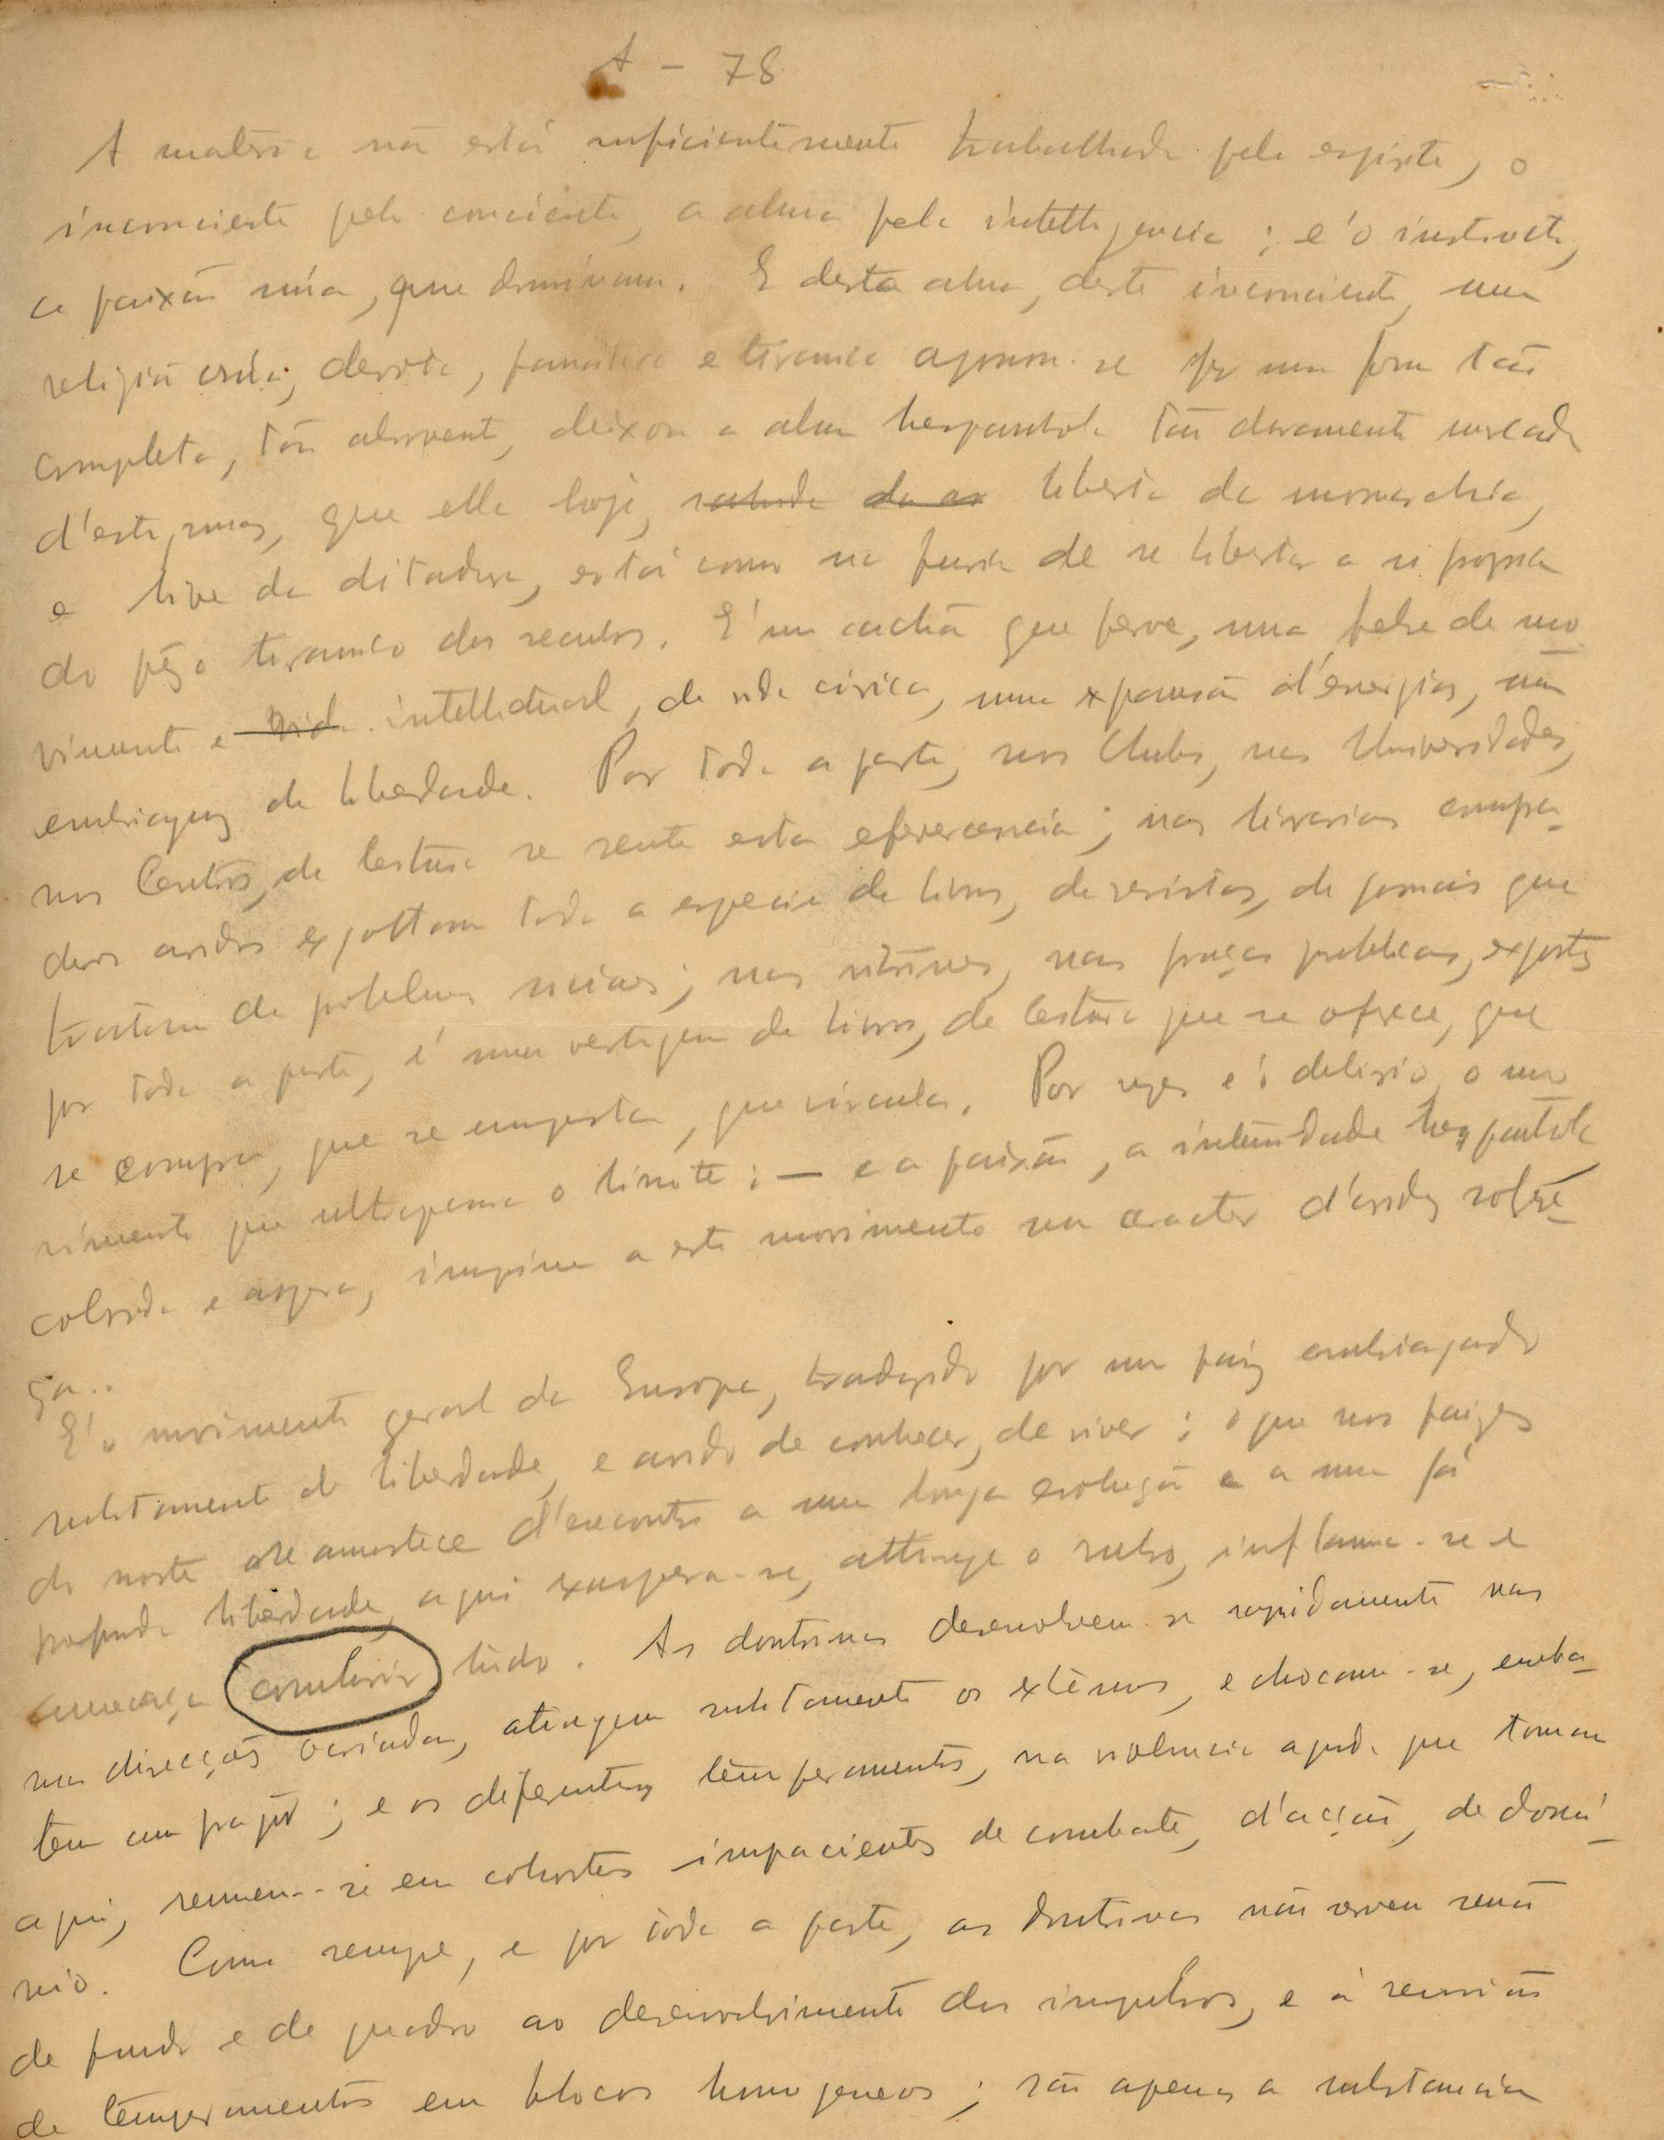 A - 78
A materia não está suficientemente trabalhada pelo espirito, o
inconciente pelo conciente, a alma pela intelligencia; é o instincto,
a paixão núa, que dominam. E desta alma, deste inconciente, uma
religião crúa, devota, fanatica e tiranica apossou-se por uma forma tão
completa, tão absorvente, deixou a alma hespanhola tão duramente marcada
d'estigmas, que ella hoje, da liberta da monarchia,
e livre da ditadura, está como na furia de se libertar a si propria
do pêso tiranico dos seculos. É um cachão que ferve, uma febre de mo-
vimento e vida intellectual, de vida civica, uma expansão d'energias, uma
embriaguez de liberdade. Por toda a parte, nos Clubs, nas Universidades,
nos Centros, de leitura se sente esta efervescencia; nas livrarias compra-
dores avidos exgottam toda a especie de livros, de revistas, de jornais que
tratem de problemas sociaes; nas vitrines, nas praças publicas, expostos
por toda a parte, é uma vertigem de livros, de leitura que se oferece, que
se compra, que se empresta, que circula. Por vezes é o delirio, o mo-
vimento que ultrapassa o limite; — e a paixão, a intensidade hespanhola
colorida e aspera, imprime a este movimento um caracter d'avidez sofre-
ga..
É o movimento geral da Europa, traduzido por um paiz embriagado
subitamente de liberdade, e avido de conhecer, de viver; o que nos paizes
do norte se amortece d'encontro a uma longa evolução e a uma já
profunda liberdade, aqui exaspera-se, attinge o rubro, inflama-se e
ameaça tudo. As doutrinas desenvolvem-se rapidamente nas
suas direcções variadas, atingem subitamente os extremos, e chocam-se, comba-
tem com; e os diferentes temperamentos, na violencia aguda que tomam
aqui, reunem-se em cohortes impacientes de combate, d'acção, de domi-
nio. Como sempre, e por toda a parte, as doutrinas não servem senão
de fundo e de quadro ao desenvolvimento dos impulsos, e á reunião
de temperamentos em blocos homogeneos; são apenas a substancia